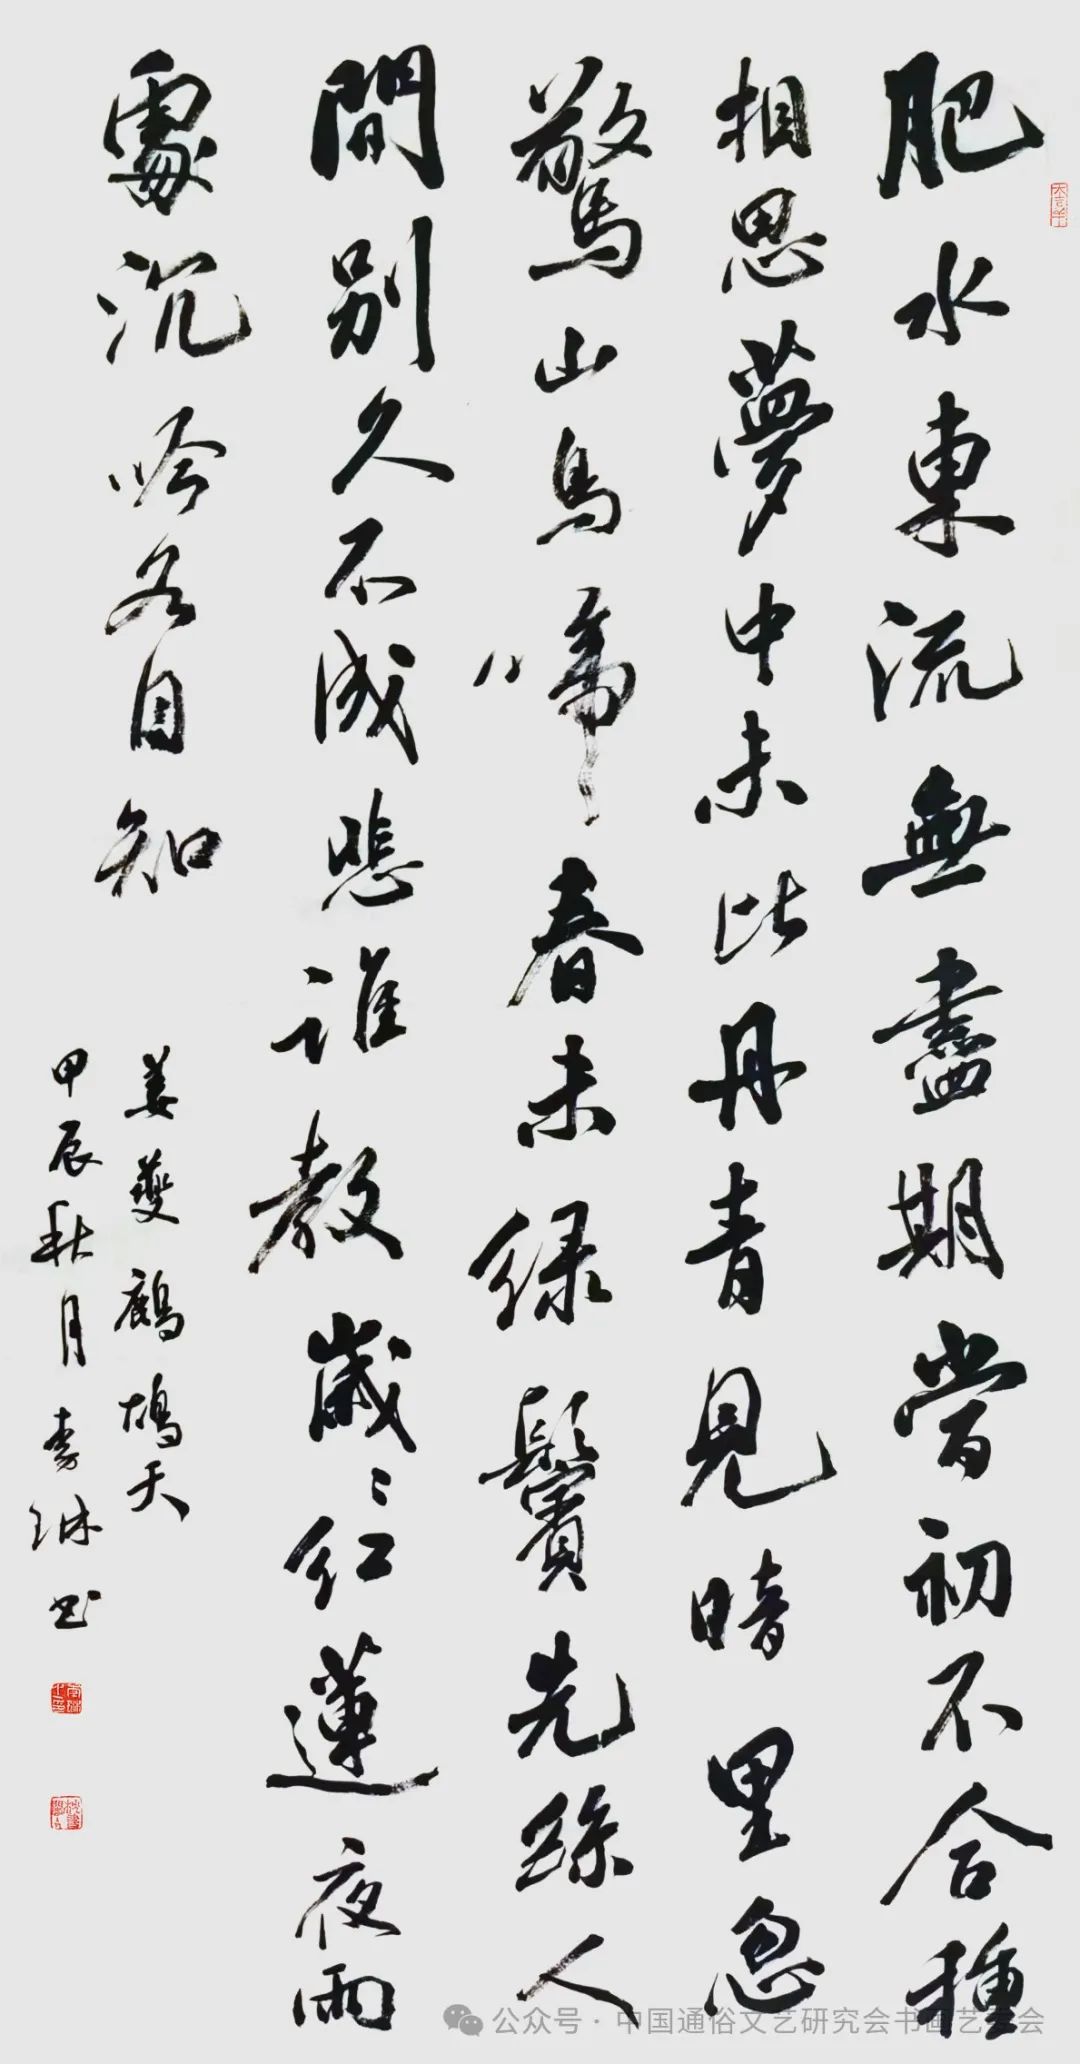 肥水東流無盡期當初不合種
相思夢中未比丹青見暗里忽
驚山鳥啼春未緑鬢先絲人
間別久不成悲誰教歲〻紅蓮夜兩
處沉吟各自知
姜夔鷓鴣天
甲辰秋月李琳书
公众号 · 中国通俗文艺研究会书画艺委会